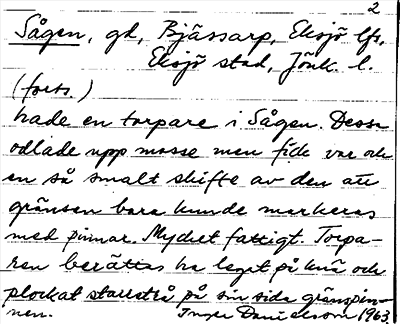 2
Sågen, gd, Bjässarp, Eksjö lfs,
Eksjö stad, Jönk. l.
(forts.)
hade en torpare i Sågen. Dessa
odlade upp mosse men fick var och
en så smalt skifte av den att
gränsen bara kunde markeras
med pinnar. Mycket fattigt. Torpa-
ren berättas ha legat på knä och
plockat starrstrå på sin sida gränspin-
nen. Inger Danielsson 1963.